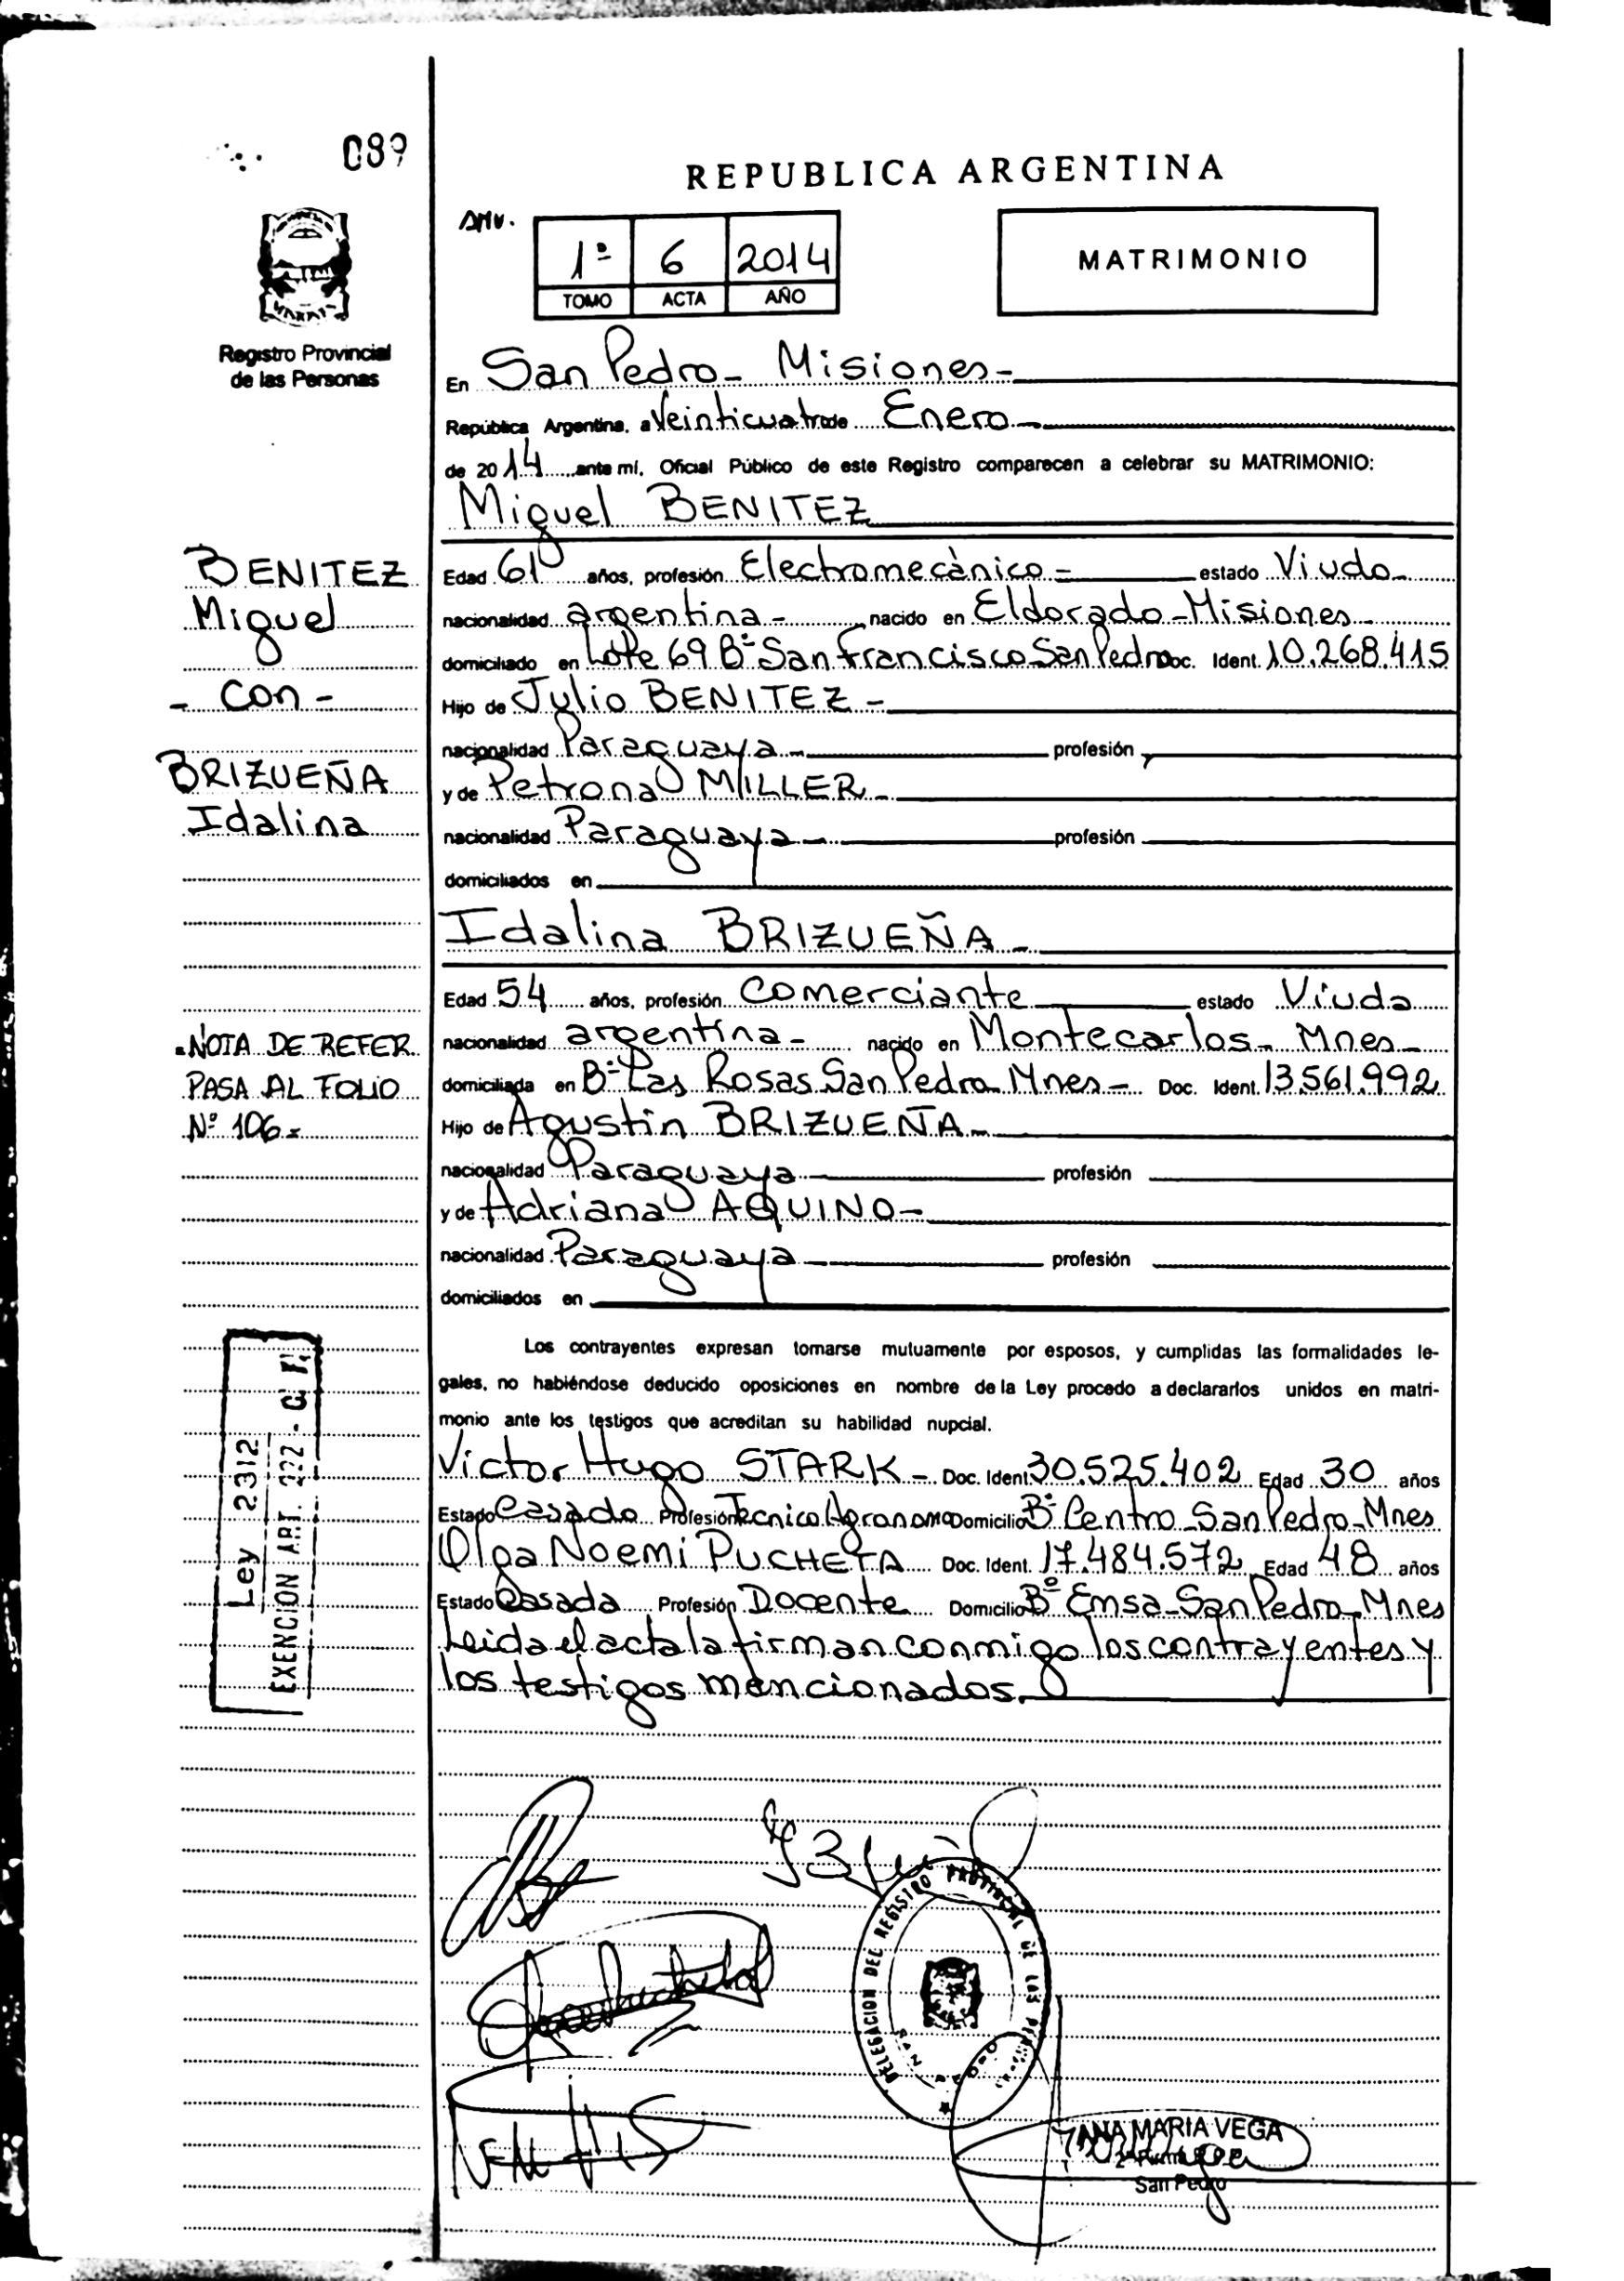 089
REPUBLICA ARGENTINA
AMV.
1ª 6 2014
TOMO ACTA AÑO
MATRIMONIO
Registro Provincial
de las Personas
En San Pedro - Misiones -
República Argentina, a Veinticuatro de Enero -
de 2014 ante mí, Oficial Público de este Registro comparecen a celebrar su MATRIMONIO:
Miguel BENITEZ
BENITEZ
Miguel
- con -
BRIZUEÑA
Idalina
Edad 61 años, profesión Electromecànico - estado Viudo -
nacionalidad argentina - nacido en Eldorado - Misiones -
domiciliado en Lote 69 Bº San Francisco San Pedro Doc. Ident. 10.268.415
Hijo de Julio BENITEZ -
nacionalidad Paraguaya - profesión
y de Petrona MILLER -
nacionalidad Paraguaya - profesión
domiciliados en
Idalina BRIZUEÑA -
Edad 54 años, profesión Comerciante estado Viuda
nacionalidad argentina - nacido en Montecarlos - Mnes -
domiciliada en Bº Las Rosas San Pedro Mnes - Doc. Ident. 13.561.992
Hijo de Agustin BRIZUEÑA -
nacionalidad Paraguaya profesión
y de Adriana AQUINO -
nacionalidad Paraguaya - profesión
domiciliados en
NOTA DE REFER
PASA AL FOLIO
Nº 106 =
Los contrayentes expresan tomarse mutuamente por esposos, y cumplidas las formalidades le-
gales, no habiéndose deducido oposiciones en nombre de la Ley procedo a declararlos unidos en matri-
monio ante los testigos que acreditan su habilidad nupcial.
Victor Hugo STARK - Doc. Ident. 30.525.402 Edad 30 años
Estado Casado Profesión Tecnico Agronomo Domicilio Bº Centro - San Pedro - Mnes
Olga Noemi PUCHETA Doc. Ident. 17.484.572 Edad 48 años
Estado Casada Profesión Docente Domicilio Bº Emsa - San Pedro - Mnes
Leida el acta la firman conmigo los contrayentes y
los testigos mencionados.
Ley 2312
EXENCION ART. 222 -
DELEGACION DEL REGISTRO PROVINCIAL DE LAS
SAN PEDRO
ANA MARIA VEGA
San Pedro